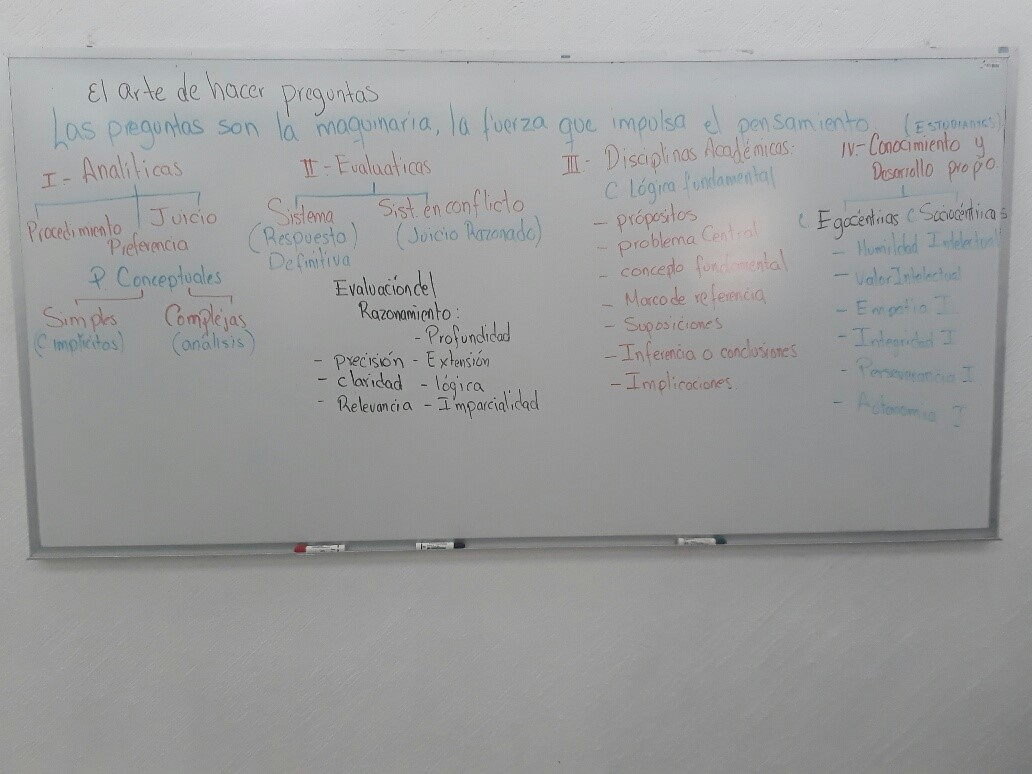 El arte de hacer preguntas
Las preguntas son la maquinaria, la fuerza que impulsa el pensamiento. (ESTUDIANTES)
I - Analíticas
Procedimiento
Juicio
Preferencia
P Conceptuales
Simples
Complejas
(C implícitos)
(análisis)
II - Evaluaticas
Sistema
Sist. en conflicto
(Respuesto)
(Juicio Razonado)
Definitiva
Evaluación del
Razonamiento:
- Profundidad
- Precisión - Extensión
- claridad - lógica
- Relevancia - Imparcialidad
III - Disciplinas Académicas:
C Lógica fundamental
- própositos
- problema Central
- concepto fundamental
- Marco de referencia
- Suposiciones
- Inferencia o conclusiones
- Implicaciones.
IV.- Conocimiento y
Desarrollo propio.
C. Egocéntrias C Sociocéntricas
- Humildad Intelectual
- Valor Intelectual
- Empatia I.
- Integridad I
- Perseverancia I
- Autonomia I